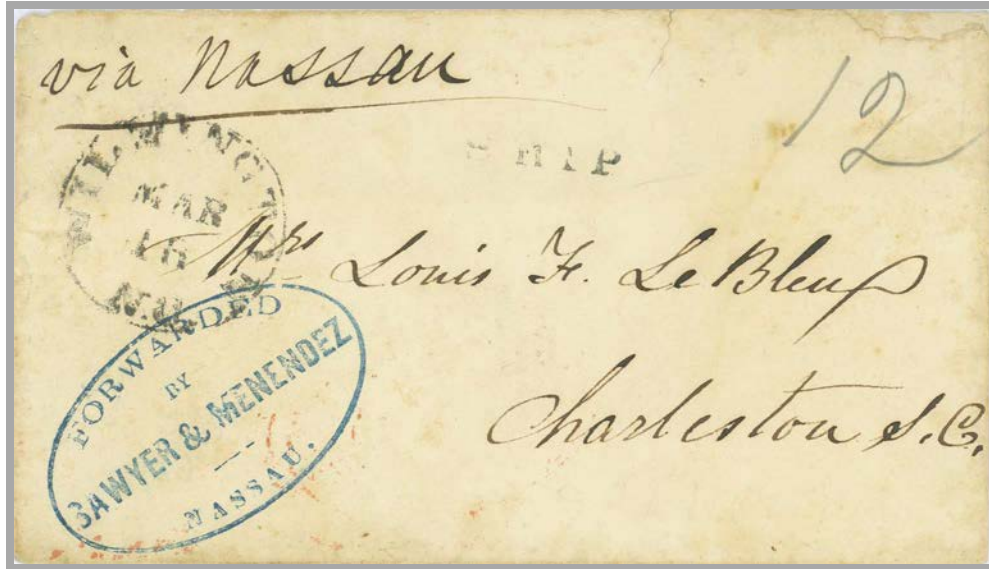 via Nassau
12
SHIP
WILMINGTON
MAR
N.C.
Mrs Louis F. LeBleux
Charleston S.C.
FORWARDED
BY
SAWYER & MENENDEZ
NASSAU.